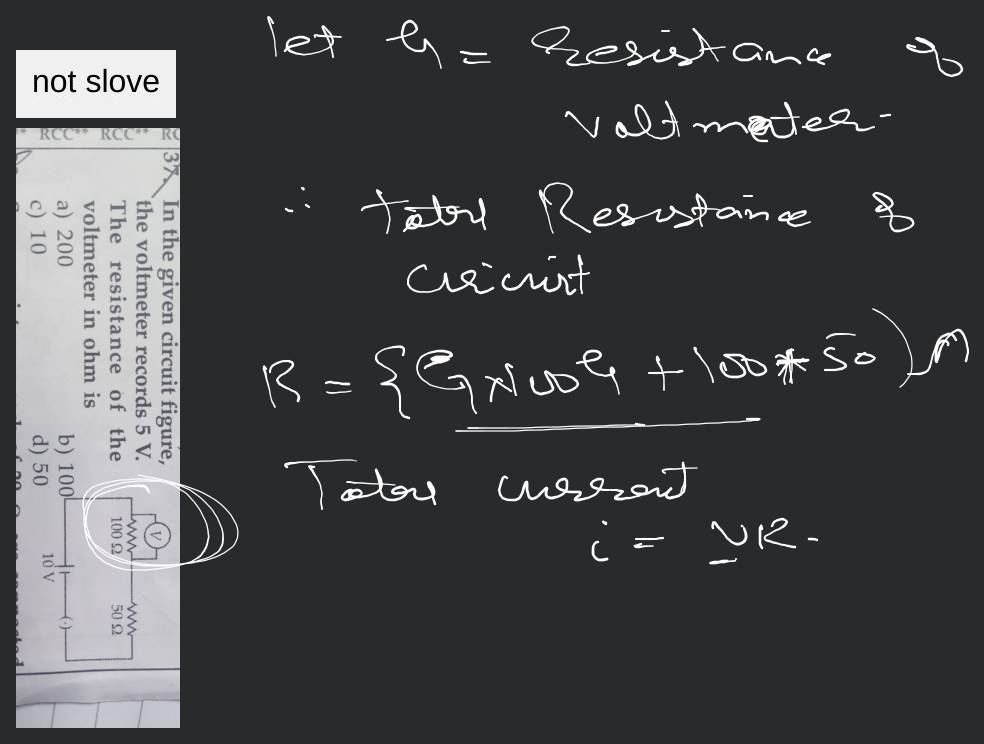 not slove
** RCC** RCC** RC
37. In the given circuit figure,
the voltmeter records 5 V.
The resistance of the
voltmeter in ohm is
a) 200 b) 100
c) 10 d) 50
V
100 Ω 50 Ω
10 V
let G = Resistance of
voltmeter
∴ Total Resistance of
circuit
R = { G × 100 G + 100 * 50 )
Total current
i = VR